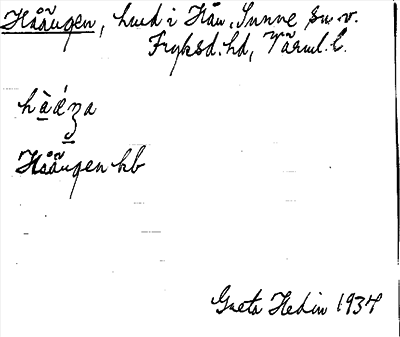 Håån̄gen, hmd i Hån, Sunne sn. v.
Fryksd. hd, Värml. l.
hàáza
Håån̄gen kb
Greta Hedin 1934